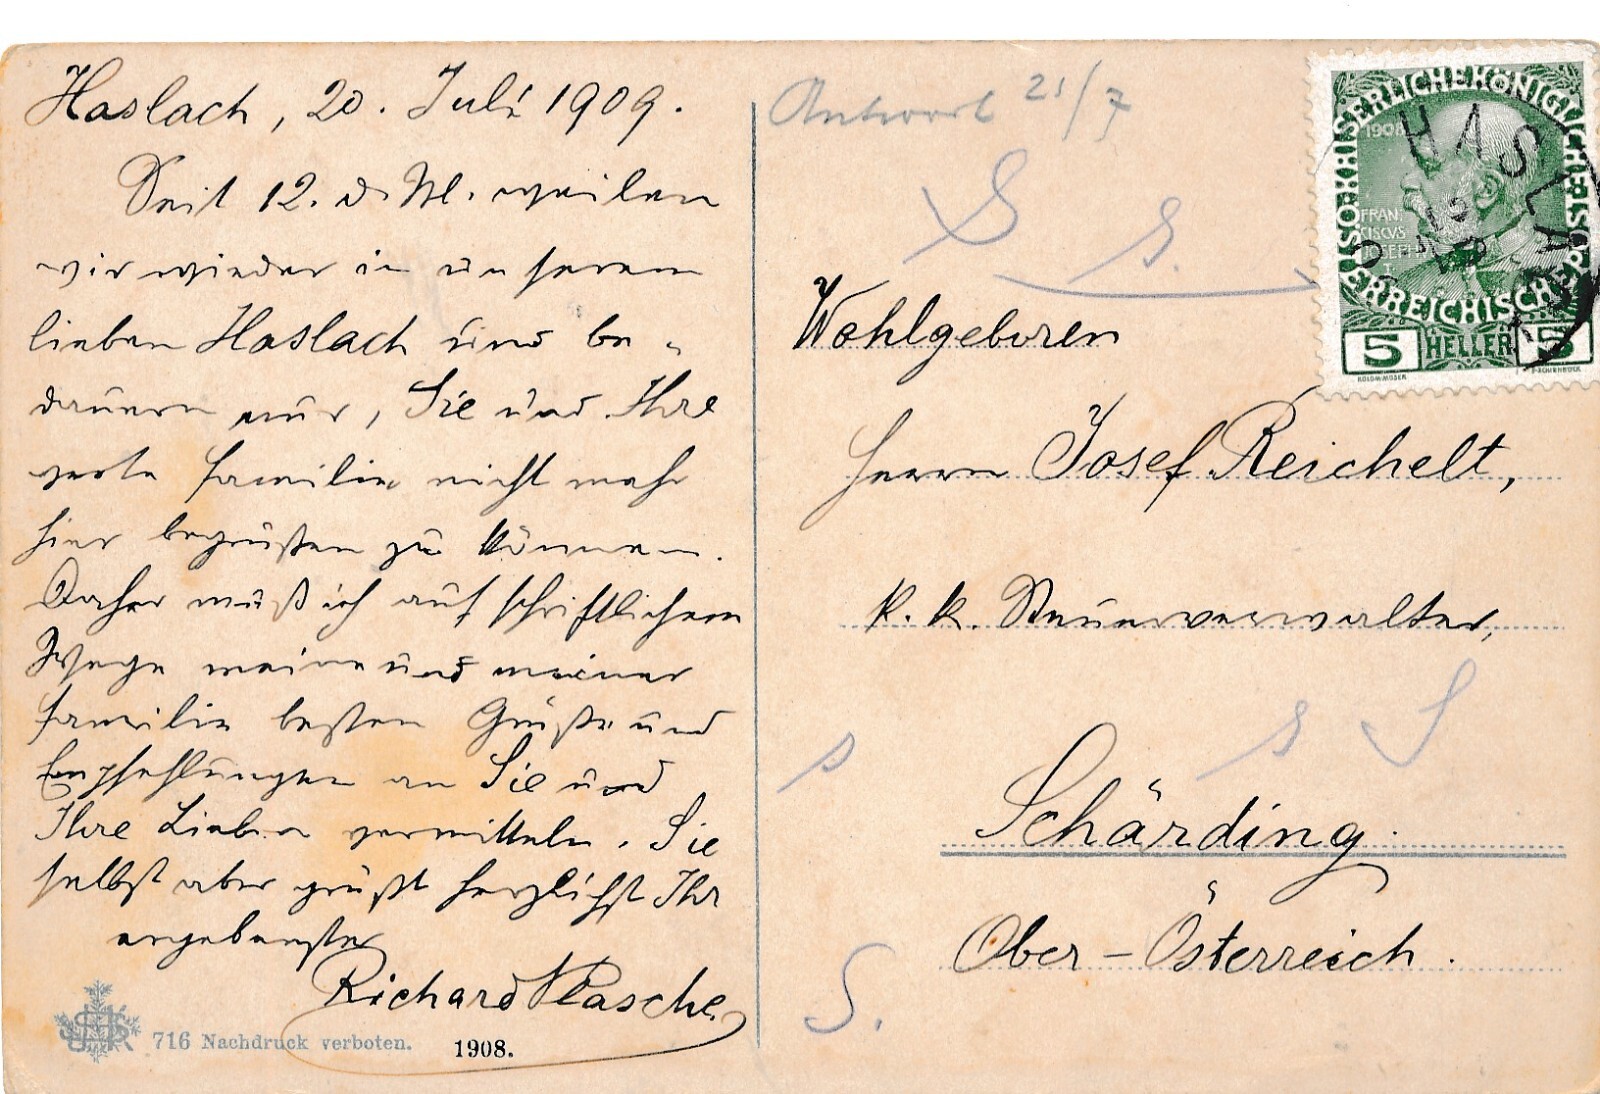 Haslach, 20. Juli 1909.
Seit 12. d. M. weilen
wir wieder in unserem
lieben Haslach und be-
dauern nur, Sie und Ihre
werte Familie nicht mehr
hier begrüßen zu können.
Daher muß ich auf schriftlichem
Wege meine und meiner
Familie besten Grüße und
Empfehlungen an Sie und
Ihre Lieben vermitteln. Sie
selbst aber grüßt herzlichst Ihr
ergebenster
Richard Plasche
716 Nachdruck verboten.
1908.
Antwort 21/7
Wohlgeboren
Herrn Josef Reichelt,
k. k. Steuerverwalter,
Schärding.
Ober-Österreich.
KAISERLICHE KÖNIGLICHE ÖSTERREICHISCHE POST
1908
FRAN
CISCVS
JOSEPH
I
5 HELLER 5
KOLOM.MOSER
HASLACH